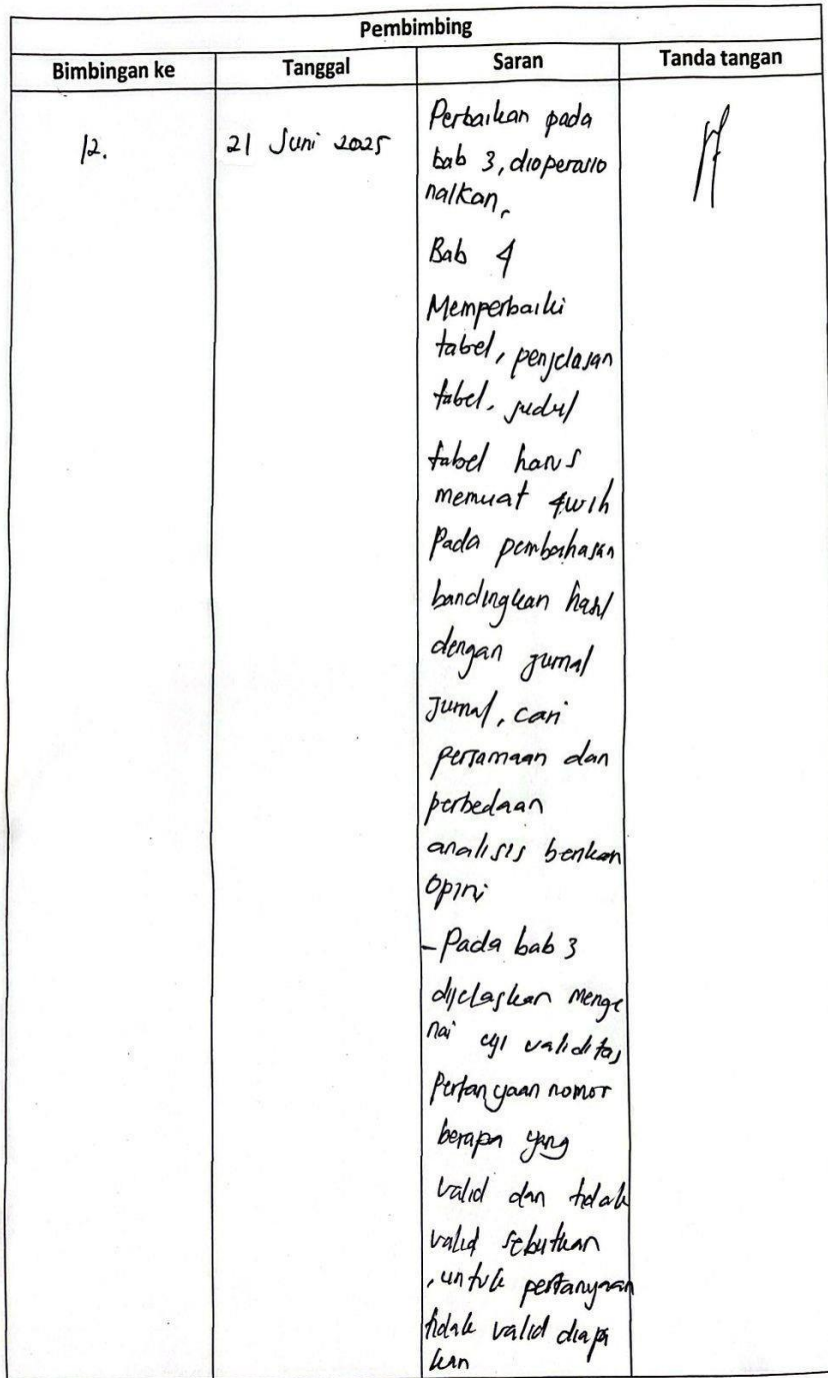 Pembimbing
Bimbingan ke Tanggal Saran Tanda tangan
12. 21 Juni 2025 Perbaikan pada
bab 3, dioperasio
nalkan,
Bab 4
Memperbaiki
tabel, penjelasan
tabel, judul
tabel harus
memuat 4w1h
Pada pembahasan
bandingkan hasil
dengan jurnal
Jurnal, cari
persamaan dan
perbedaan
analisis berikan
Opini
- Pada bab 3
dijelaskan menge
nai uji validitas
Pertanyaan nomor
berapa yang
valid dan tidak
valid sebutkan
, untuk pertanyaan
tidak valid diapa
kan